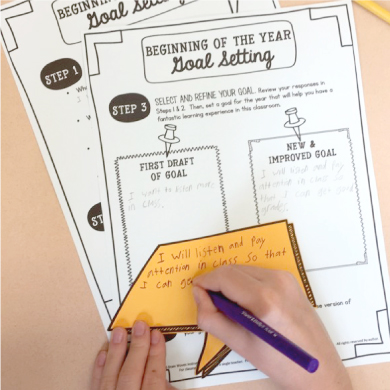 BEGINNING OF THE YEAR
Goal Setting
STEP 1
BEGINNING OF THE YEAR
Goal Setting
STEP 3
SELECT AND REFINE YOUR GOAL. Review your responses in
Steps 1 & 2. Then, set a goal for the year that will help you have a
fantastic learning experience in this classroom.
FIRST DRAFT
OF GOAL
I want to listen more
in class.
NEW &
IMPROVED GOAL
I will listen and pay
attention in class so
that I can get good
grades.
I will listen and pay
attention in class so that
I can ge
version of